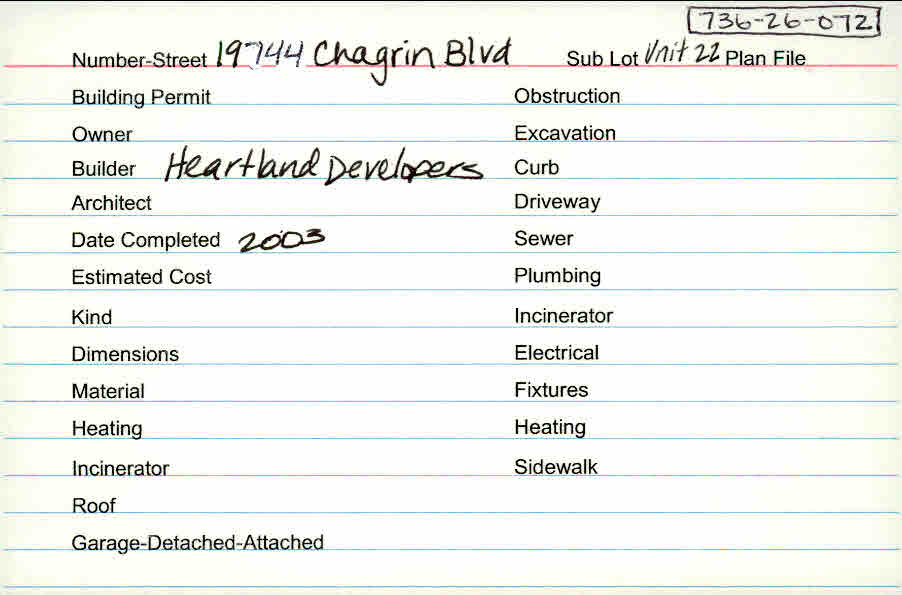 736-26-072
Number-Street 19744 Chagrin Blvd Sub Lot Unit 22 Plan File
Building Permit Obstruction
Owner Excavation
Builder Heartland Developers Curb
Architect Driveway
Date Completed 2003 Sewer
Estimated Cost Plumbing
Kind Incinerator
Dimensions Electrical
Material Fixtures
Heating Heating
Incinerator Sidewalk
Roof
Garage-Detached-Attached